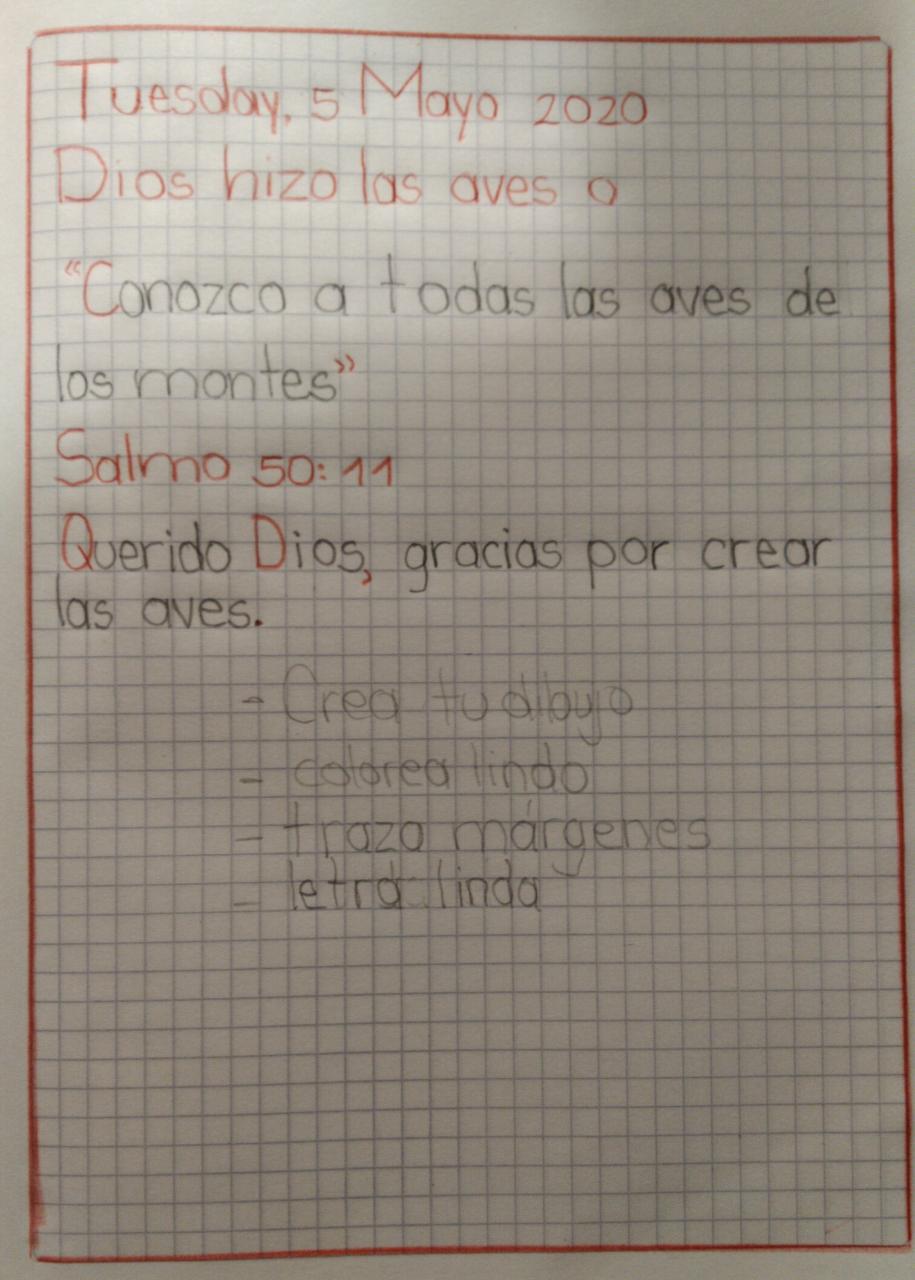 Tuesday, 5 Mayo 2020
Dios hizo las aves o
"Conozco a todas las aves de
los montes"
Salmo 50:11
Querido Dios, gracias por crear
las aves.
- Crea tu dibujo
- colorea lindo
- traza márgenes
- letra linda